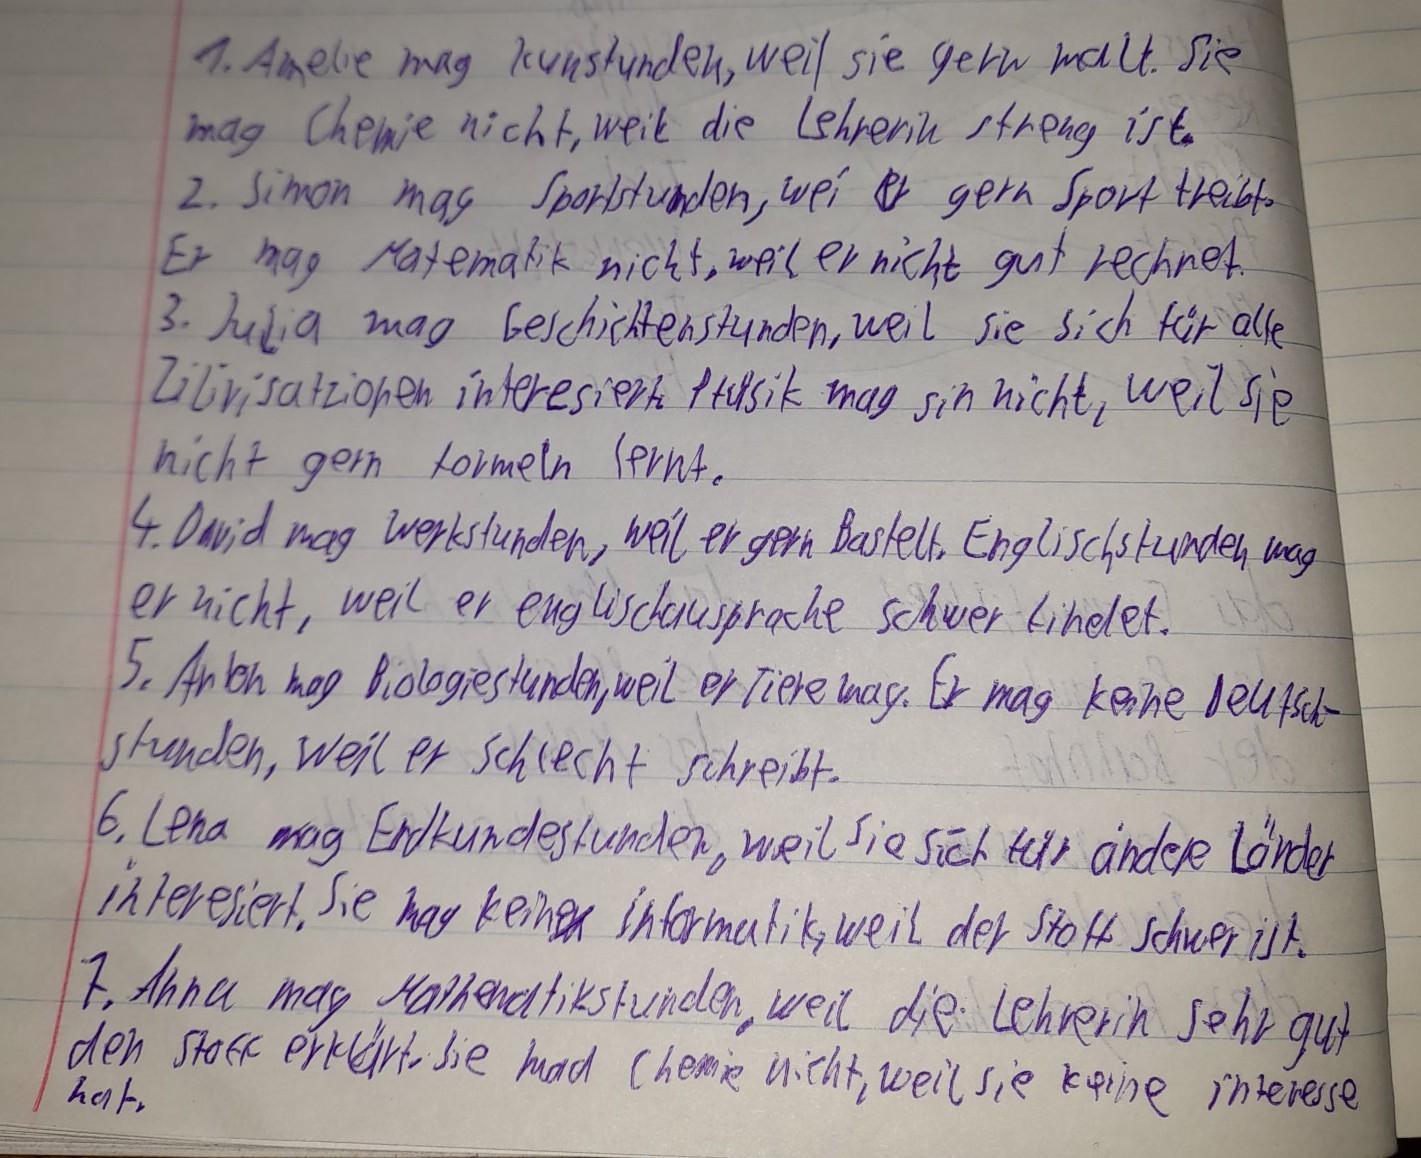 1. Amelie mag Kunstunden, weil sie gern malt. Sie
mag Chemie nicht, weil die Lehrerin streng ist.
2. Simon mag Sportstunden, wei er gern Sport treibt.
Er mag Matematik nicht, weil er nicht gut rechnet.
3. Julia mag Geschichtenstunden, weil sie sich für alle
Zilivisatzionen interesiert. Phüsik mag sin nicht, weil sie
nicht gern formeln lernt.
4. David mag Werkstunden, weil er gern Bastelt. Englischstunden mag
er nicht, weil er englischausprache schwer findet.
5. Anton mag Biologiestunden, weil er Tiere mag. Er mag keine Deutsch-
stunden, weil er schlecht schreibt.
6. Lena mag Erdkundestunden, weil Sie sich für andere Länder
interesiert. Sie mag keine informatik, weil der Stoff schwer ist.
7. Anna mag Mathematikstunden, weil die Lehrerin sehr gut
den Stoff erklärt. Sie mad Chemie nicht, weil sie keine interesse
hat.